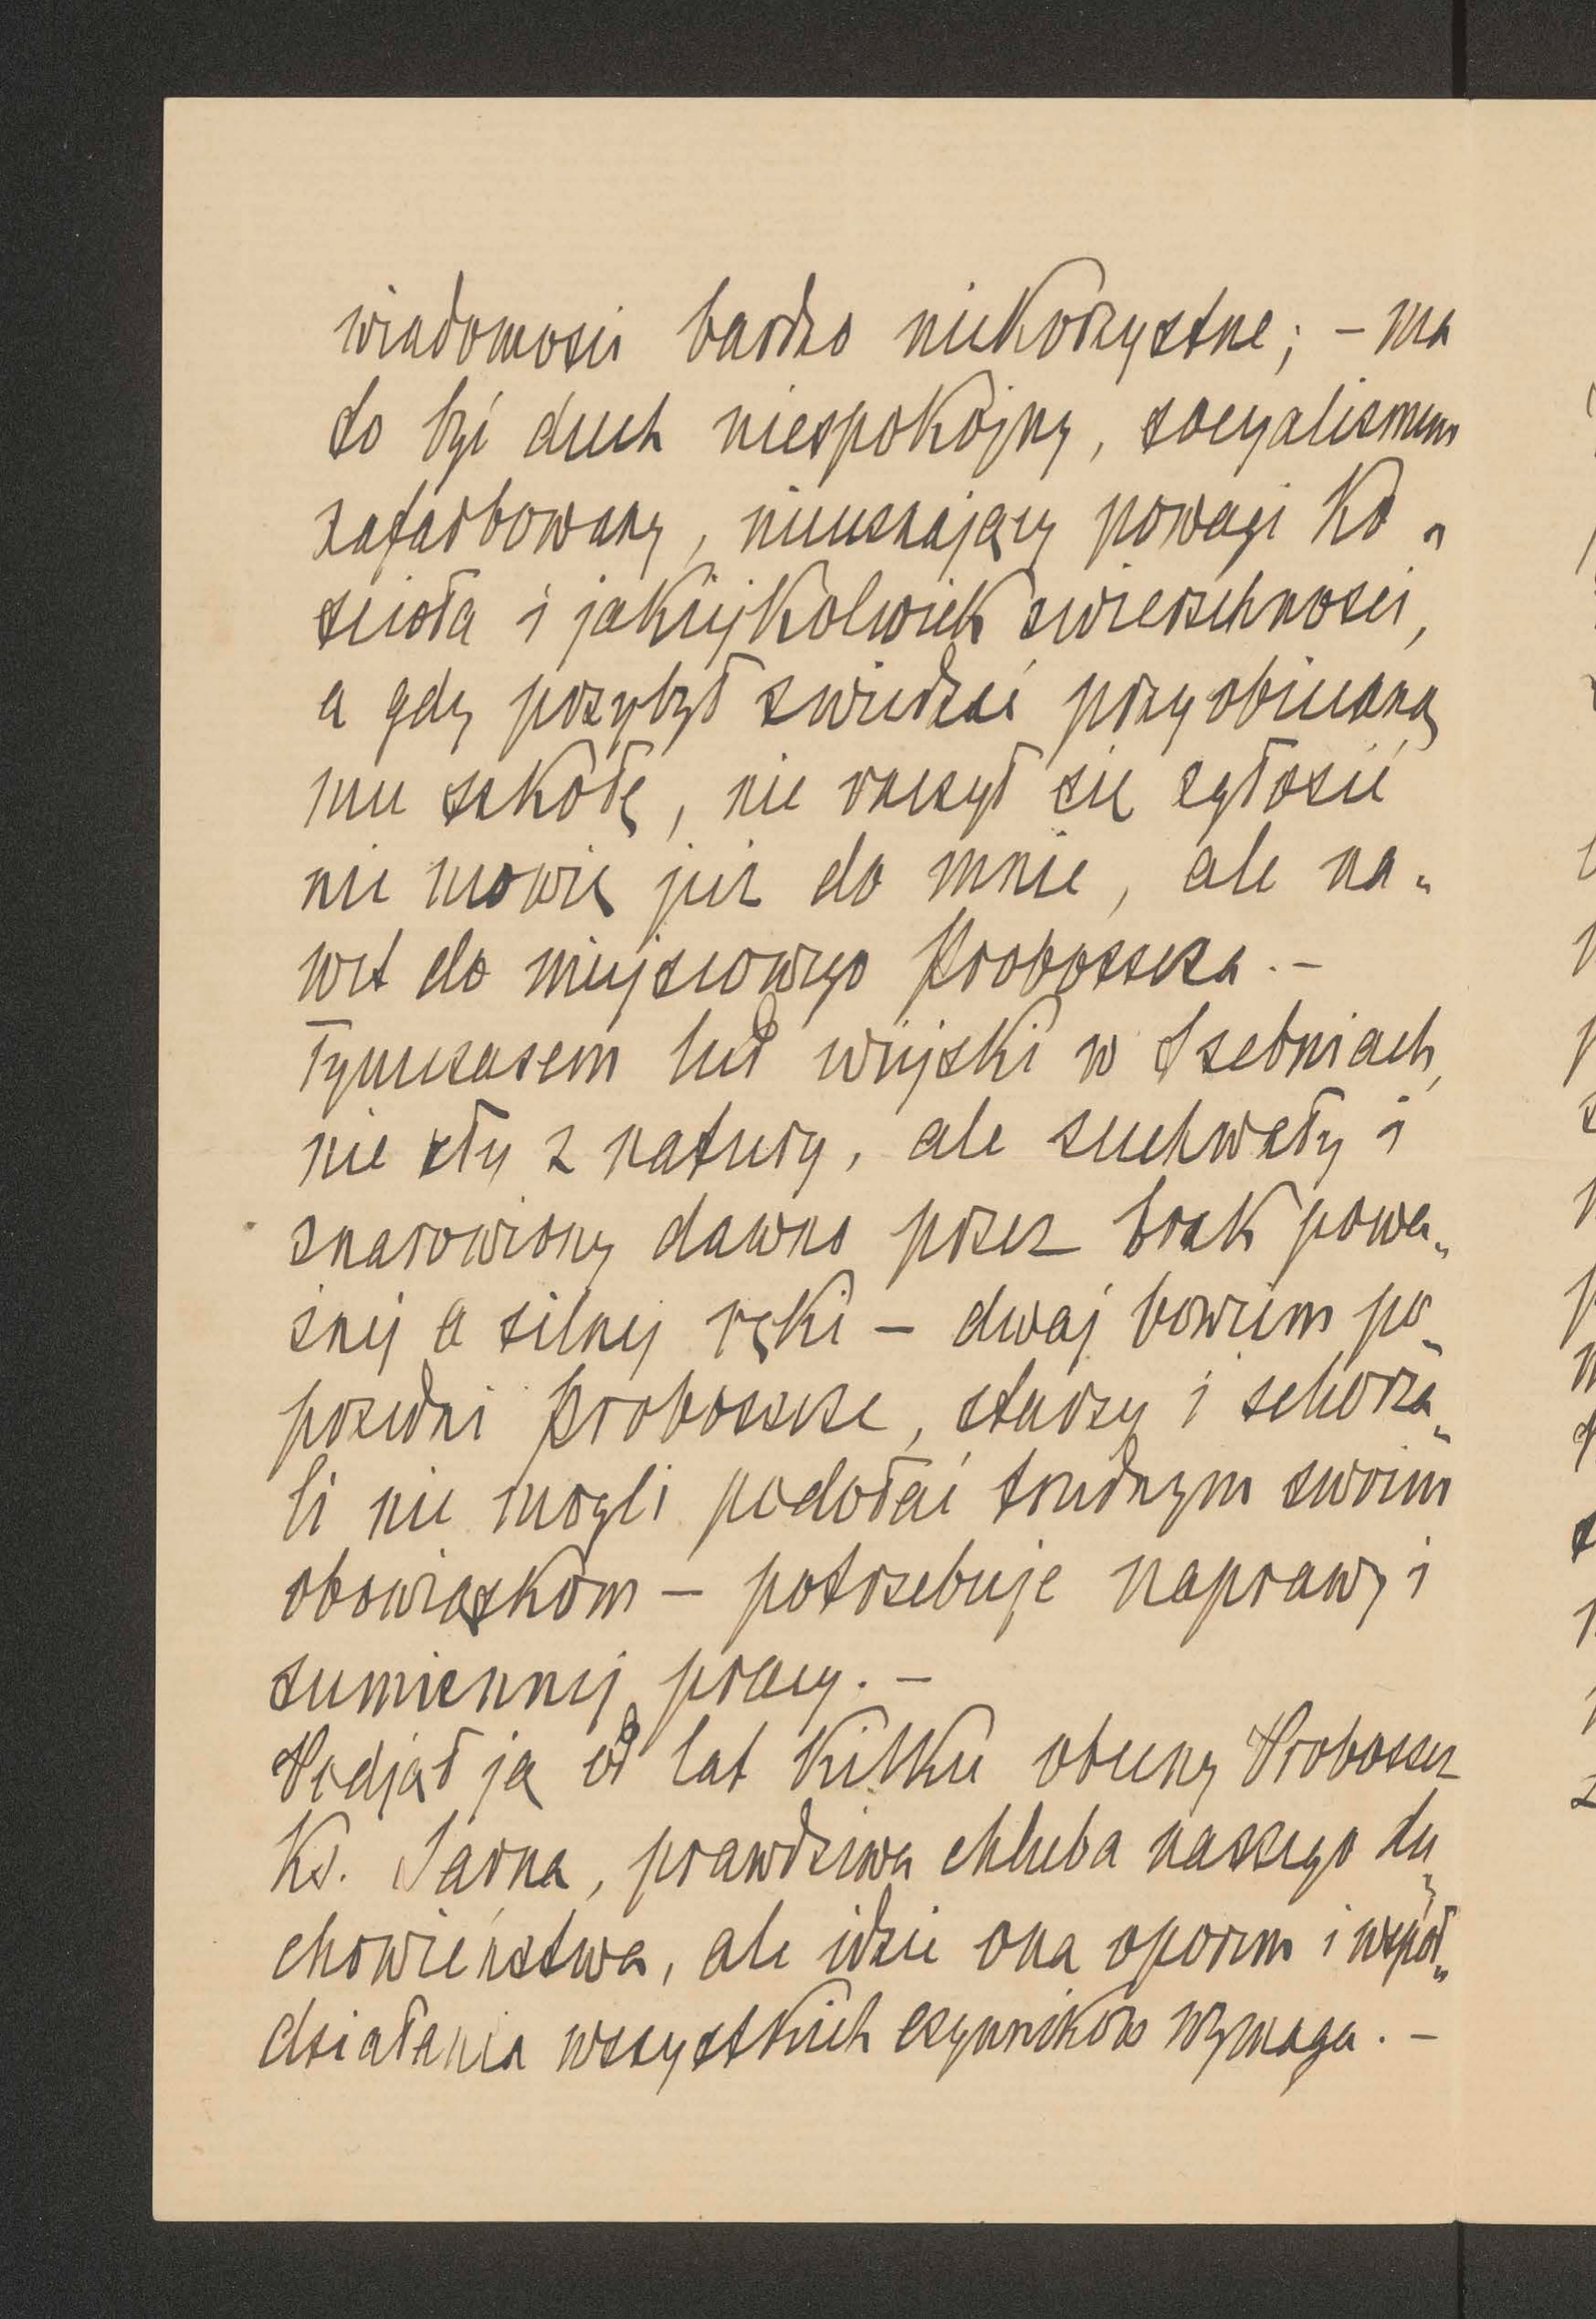 wiadomości bardzo niekorzystne; – ma
to być duch niespokojny, socyalizmem
zafarbowany, nieuznający powagi Ko„
ścioła i jakiejkolwiek zwierzchności,
a gdy przybył zwiedzić przyobiecaną
mu szkołę, nie raczył się zgłosić
nie mówię już do mnie, ale na„
wet do miejscowego Proboszcza. –
Tymczasem lud wiejski w Szebniach,
nie zły z natury, ale zuchwały i
znarowiony dawno przez brak powa„
żnej a silnej ręki – dwaj bowiem po„
przedni Proboszcze, starzy i schorza„
li nie mogli podołać trudnym swoim
obowiązkom – potrzebuje naprawy i
sumiennej pracy. –
Podjął ją od lat kilku obecny Proboszcz
Ks. Sarna, prawdziwa chluba naszego du„
chowieństwa, ale idzie ona oporem i współ„
działania wszystkich czynników wymaga. –